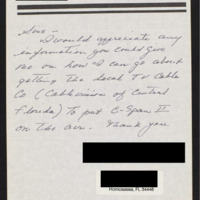 Sirs -
I would appreciate any
information you could give
me on how I can go about
getting the local TV Cable
Co (Cablevision of Central
Florida) to put C-Span II
on the air. Thank you
Homosassa, FL 34448